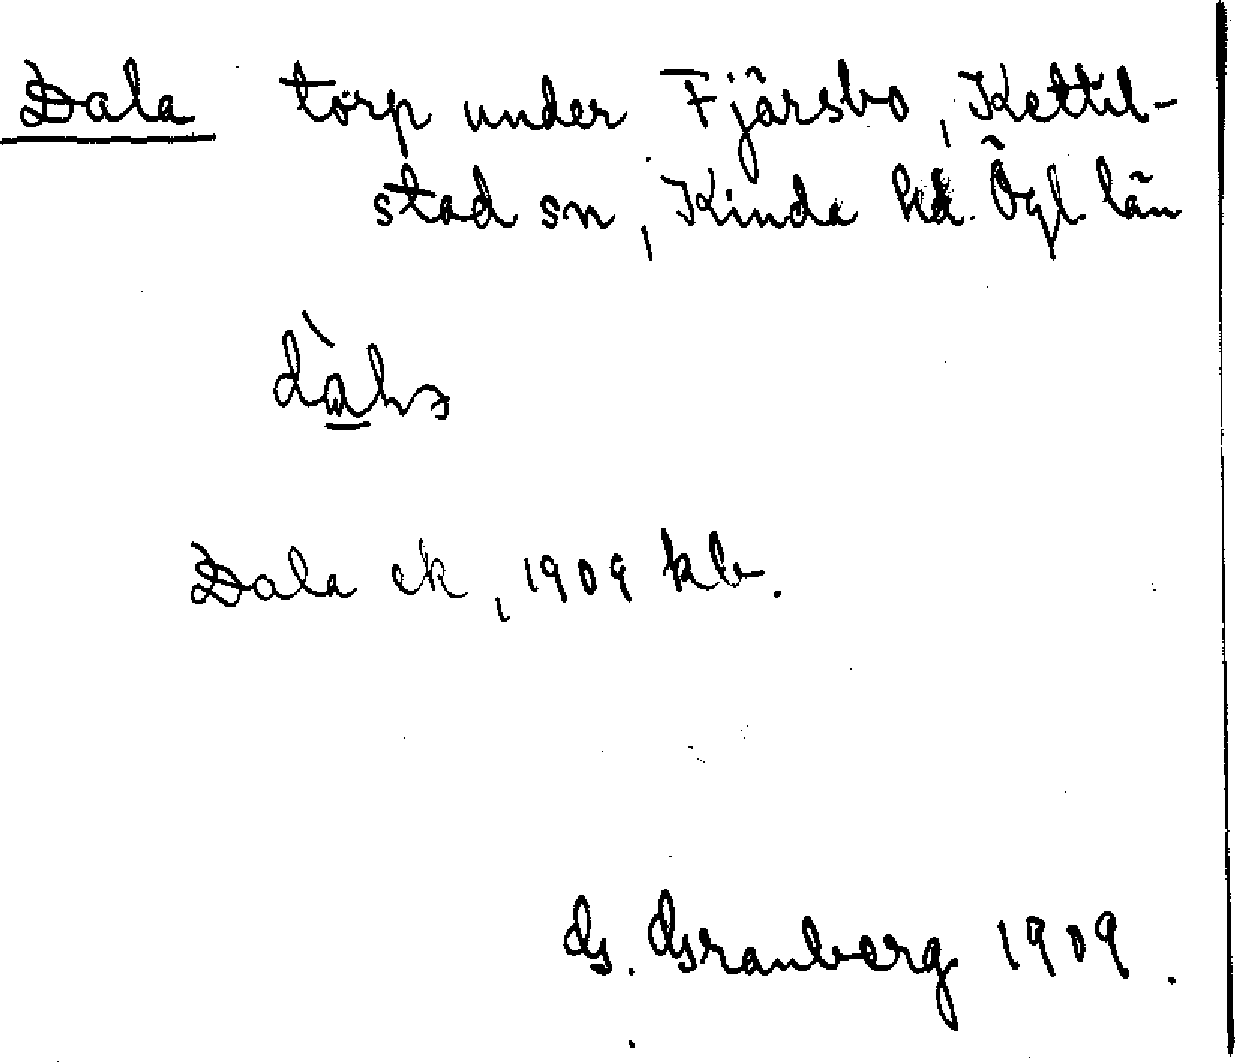 Dala torp under Fjärsbo, Kettil-
stad sn, Kinda hd. Ögl. län
Dala ek, 1909 kb.
G. Granberg 1909.